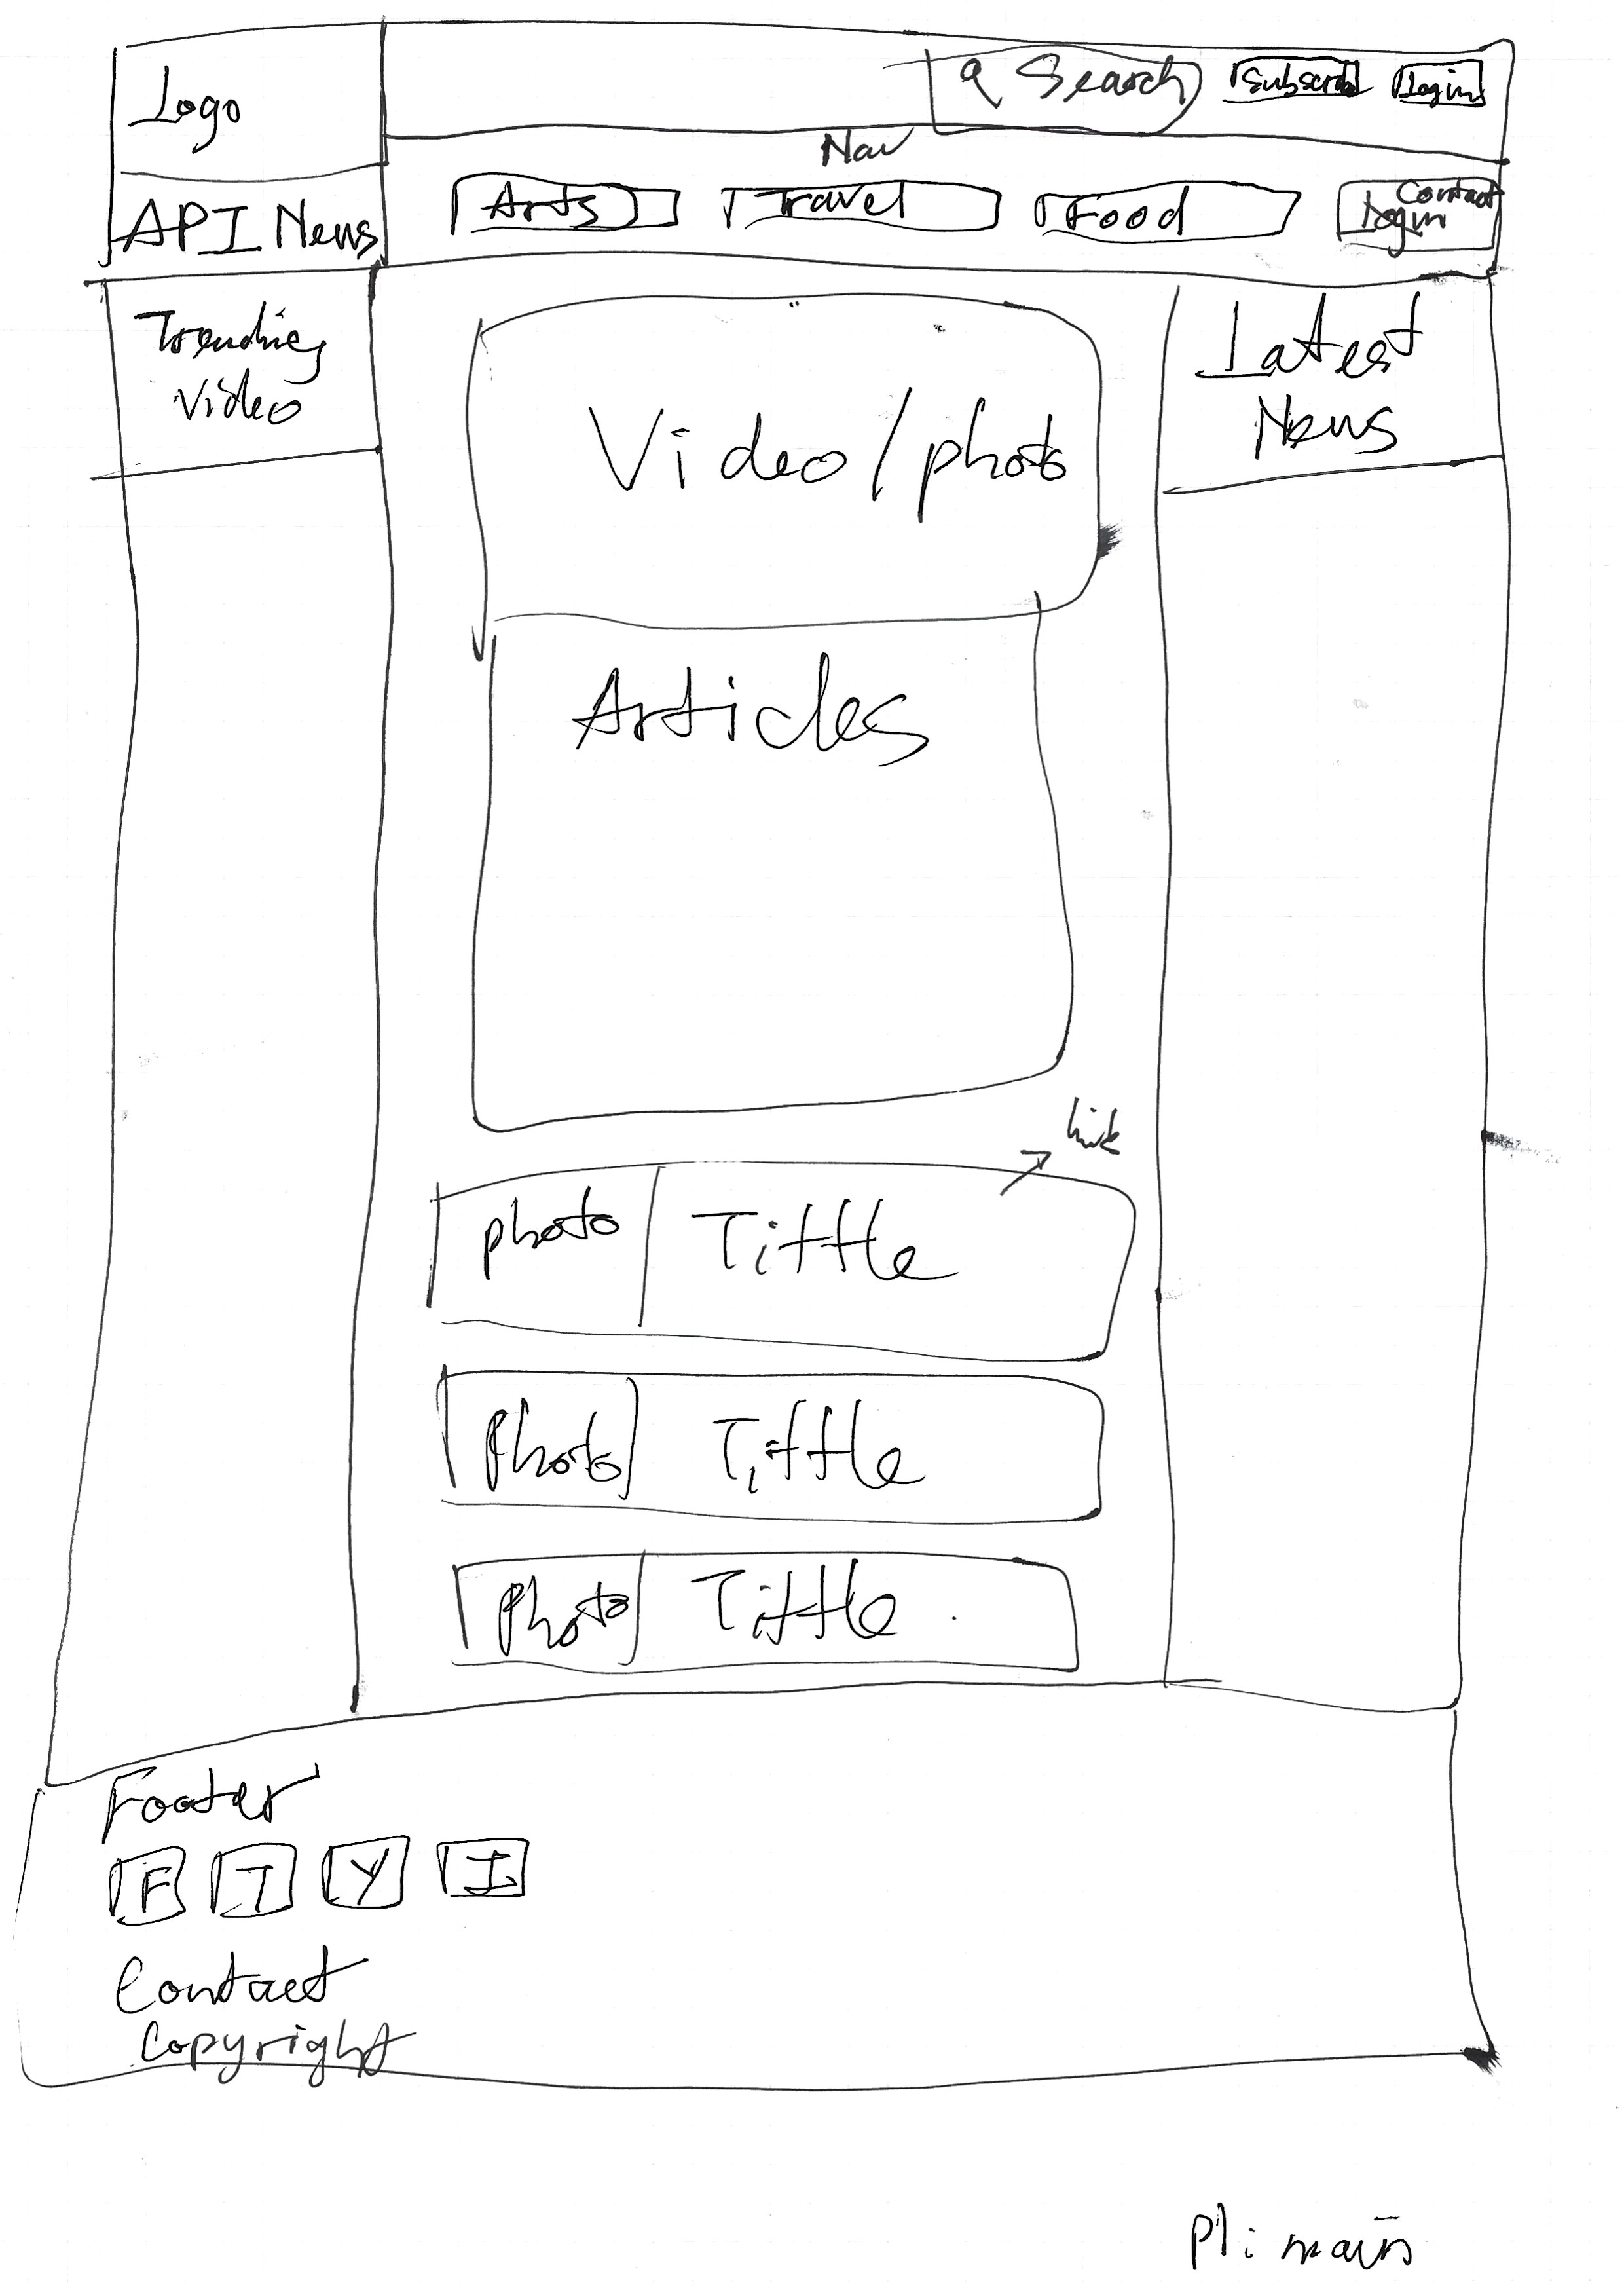 Logo
Search
Subscrib
Login
Nav
API News
Arts
Travel
Food
Contact
Login
Trending
Video
Video/photo
Latest
News
Articles
link
photo
Tittle
Photo
Tittle
Photo
Tittle
Footer
F
T
Y
I
Contact
Copyright
P1: main